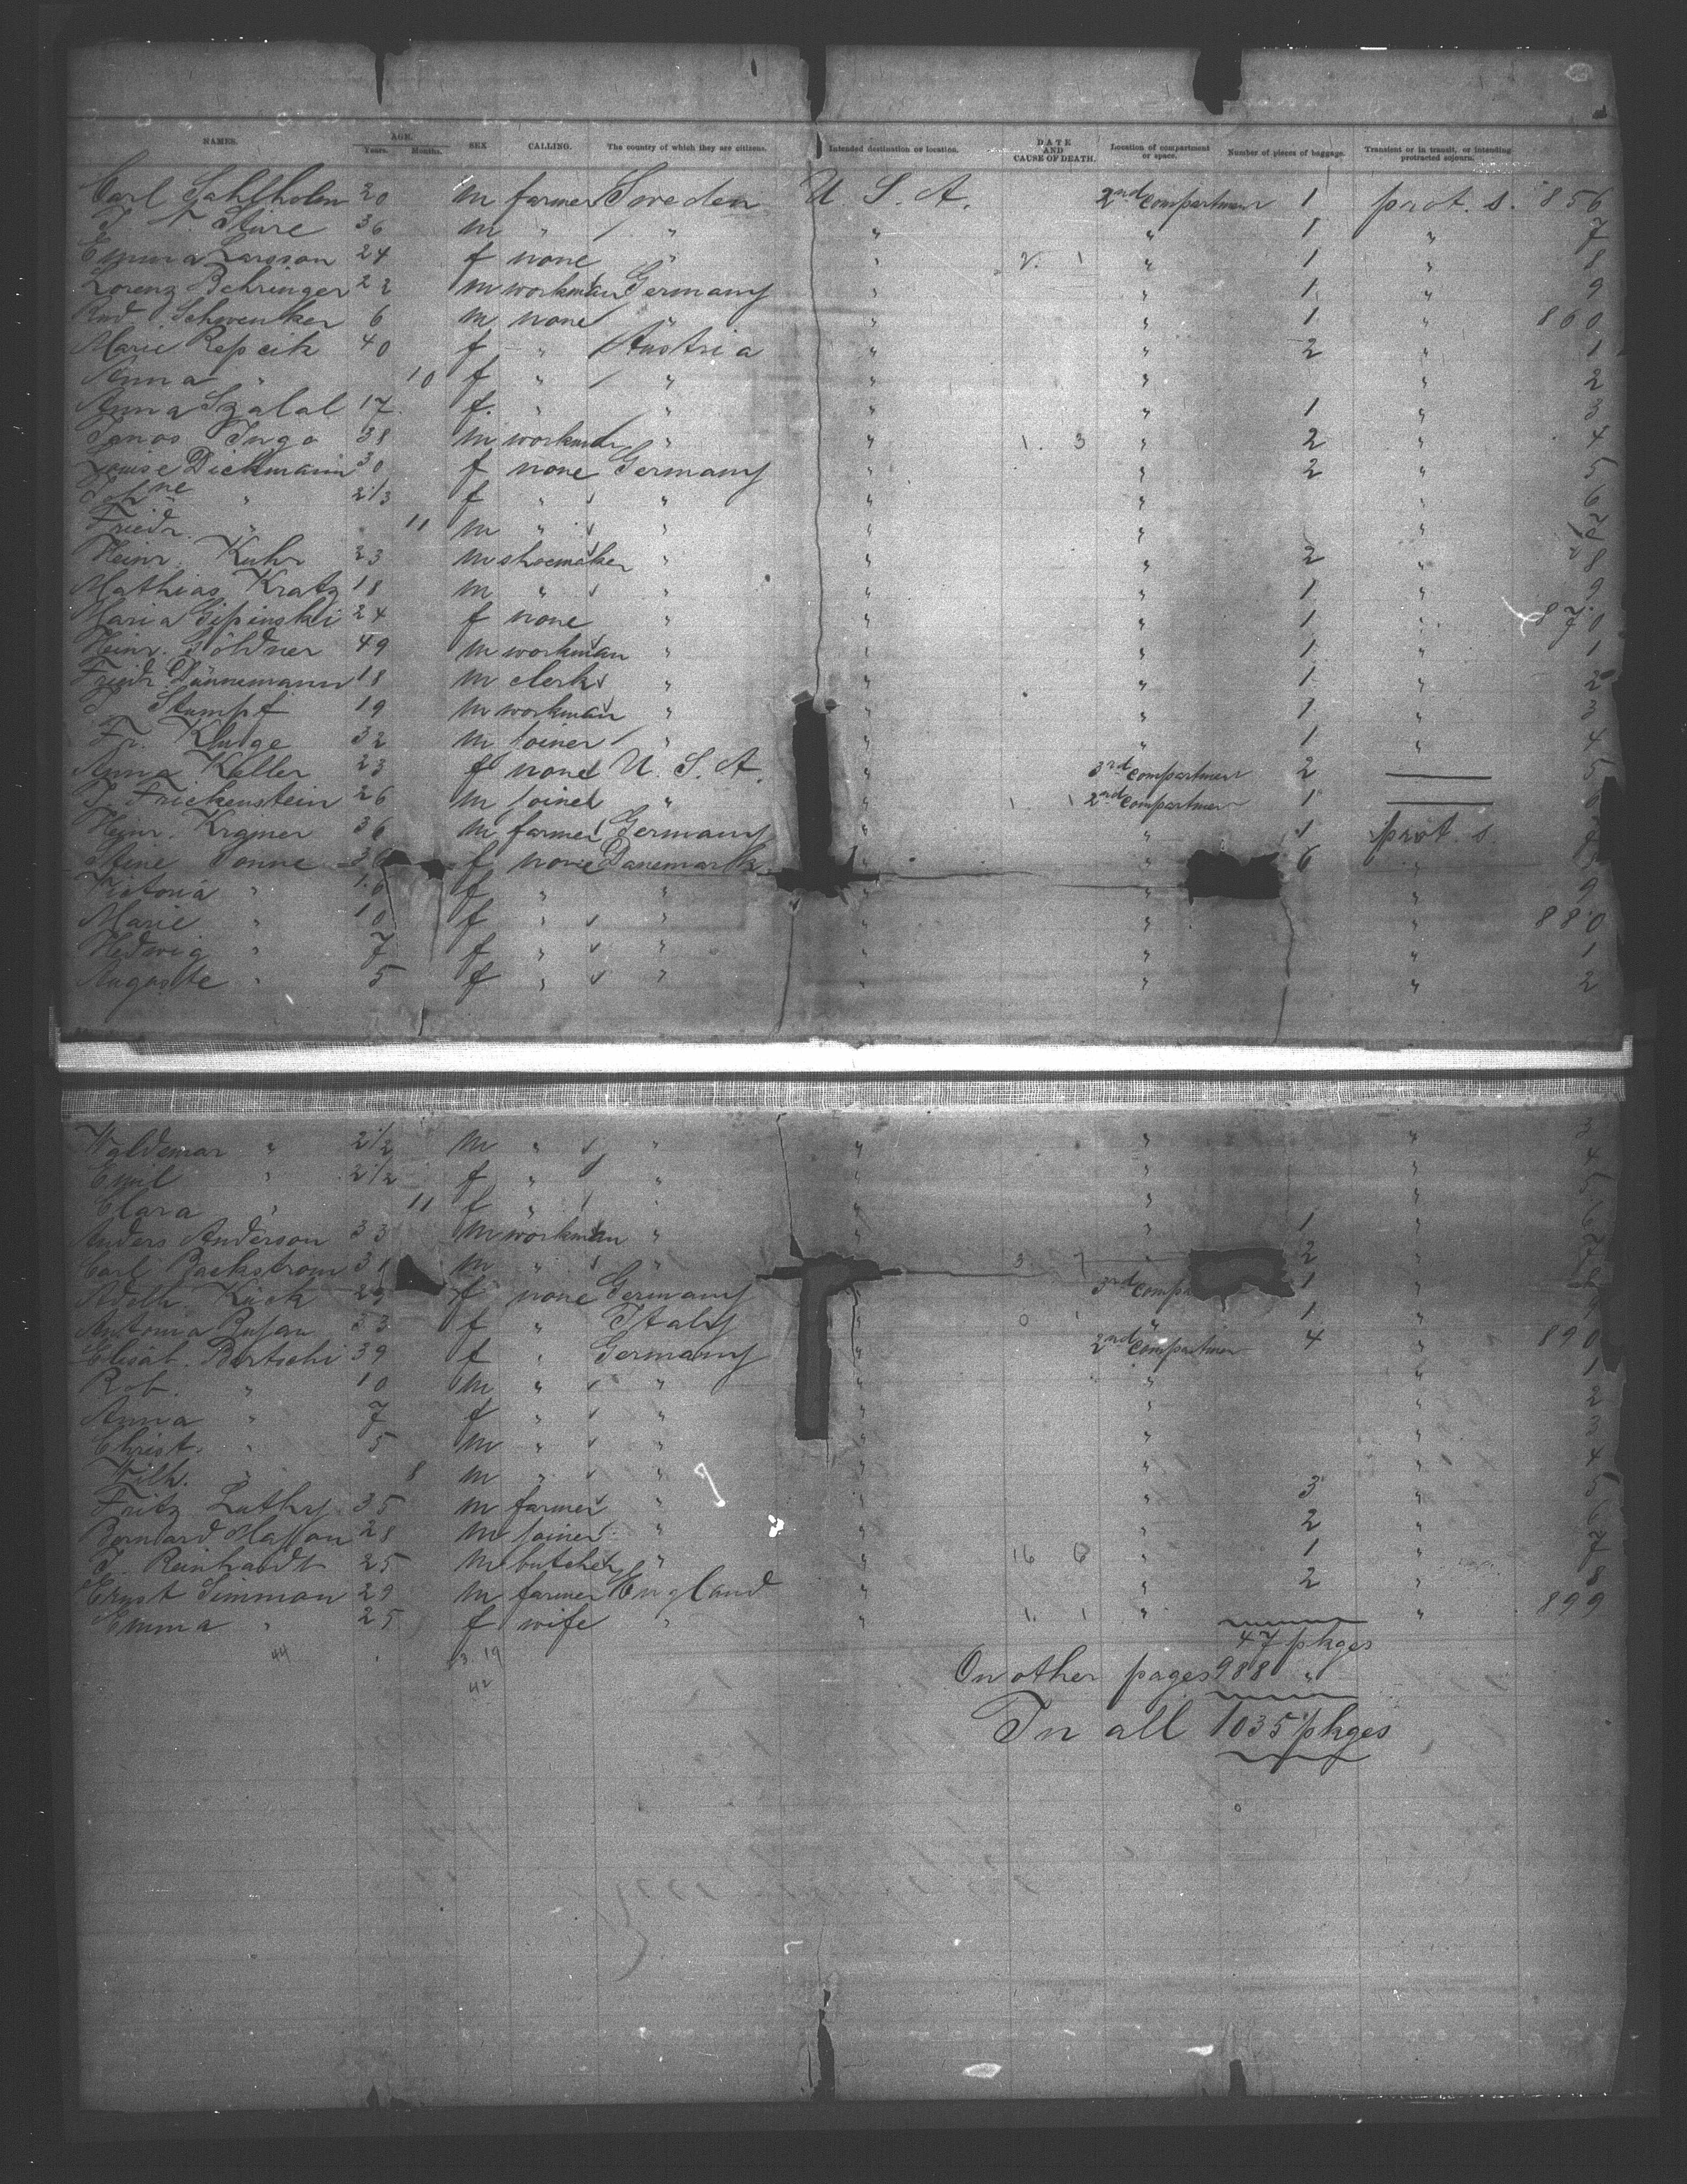 NAMES. AGE. Years. Months. SEX CALLING. The country of which they are citizens. Intended destination or location. DATE AND CAUSE OF DEATH. Location of compartment or space. Number of pieces of baggage. Transient or in transit, or intending protracted sojourn.
Carl Gahlholm 20 m farmer Sweden U. S. A. 2nd compartment 1 prot. s. 856
36 m " " " " 1 " 7
Emma Larsson 24 f none " " 2. 1 " 1 " 8
Lorenz Behringer 22 m workman Germany " " 1 " 9
Rud Schwenker 6 m none " " " 1 " 860
Marie Repcik 40 f " Austria " " 2 " 1
Anna " 10 f " " " " " 2
Anna Szalal 17 f. " " " " 1 " 3
Janos Inga 38 m workm " " 1. 3 " 2 " 4
Louise Dickmann 30 f none Germany " " 2 " 5
Johne " 2 1/3 f " " " " " 6
Friedr. " 11 m " " " " " 7
Heinr. Kuhr 23 m shoemaker " " " 2 " 8
Mathias Kratz 18 m " " " " 1 " 9
Maria Gipinski 24 f none " " " 1 " 870
Heinr. Göldner 49 m workman " " " 1 " 1
Friedr. Dünnemann 18 m clerk " " " 1 " 2
Stumpf 19 m workman " " " 1 " 3
Fr. Kluge 32 m joiner " " " 1 " 4
Anna Keller 23 f none U. S. A. " 3rd compartmen 2 5
J. Frickenstein 26 m joiner " " 1 1 2nd compartmen 1
Heinr. Kramer 36 m farmer Germany " " 1 prot. s.
Stine Tonne f none Danemark " 6 "
Victoria " 16 f " " " " " 9
Marie " 10 f " " " " " 880
Hedwig " 7 f " " " " " 1
Auguste " 5 f " " " " " 2
Waldemar " 2 1/2 m " " " " " 3
Emil " 2 1/2 f " " " " " 4
Clara " 11 f " " " " " 5
Anders Anderson 33 m workman " " " 1 " 6
Carl Backstrom 31 m " " " 3 7 2 " 7
Kück f none Germany 3rd comp 1 "
Antonia 33 f " Italy " 0 1 " 1 " 9
Elisab. Bertschi 39 f " Germany " 2nd compartmen 4 " 890
Rob. " 10 m " " " " " 1
Anna " 7 f " " " " " 2
Christ. " 5 m " " " " " 3
Wilh. " 8 m " " " " " 4
Fritz Luthy 35 m farmer " " " 3 " 5
Bernhard Hassan 28 m joiner " " " 2 " 6
J. Reinhardt 25 m butcher " " 16 6 " 1 " 7
Ernst Simmon 29 m farmer England " " 2 " 8
Emma " 25 f wife " " 1. 1 " " 899
44 3 19 47 pkges
42 On other pages 988 "
In all 1035 pkges